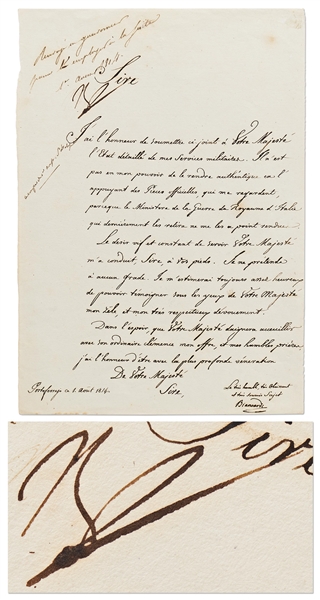 Renvoyé a
pour être employé à la suite
1er Aout 1814
N
Sire
J'ai l'honneur de soumettre ci joint à Vôtre Majesté
l'Etat détaillé de mes Services militaires. Il n'est
pas en mon pouvoir de le rendre authentique en l'
appuyant des Pièces officielles qui me regardent,
parceque le Ministere de la Guerre du Royaume d'Italie
qui dernièrement les retira, ne me les a point rendues.
Le desir vif et constant de servir Vôtre Majesté
m'a conduit, Sire, à vos pieds. Je ne prétends
à aucun Grade. Je m'estimerai toujours assez heureux
de pouvoir témoigner sous les yeux de Vôtre Majesté
mon zèle, et mon très respectueux dévouement.
Dans l'espoir, que Vôtre Majesté daignera accueillir
avec son ordinaire clémence mon offre, et mes humbles prières,
j'ai l'honneur d'être avec la plus profonde vénération
De Vôtre Majesté
Portoferrajo ce 1. Aout 1814.
Sire,
Le très humble, très obeissant
et très soumis Sujet
N
Sire